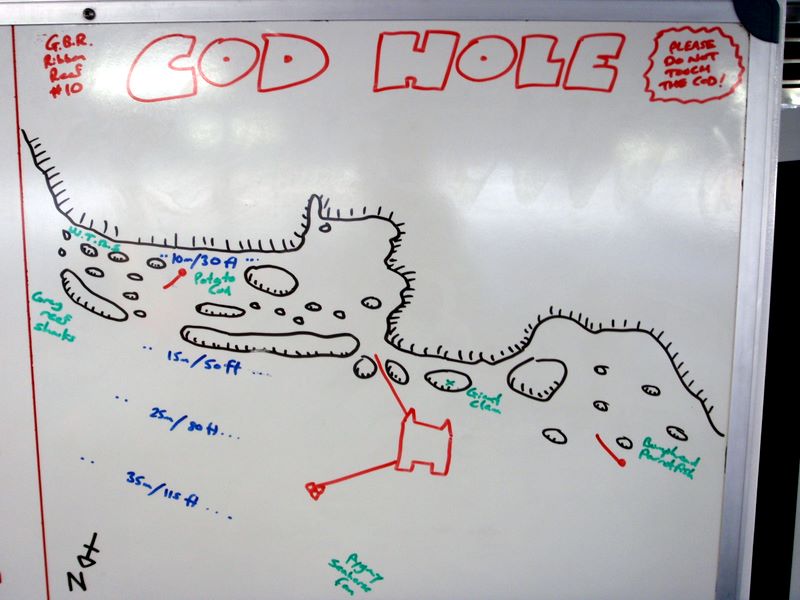 G.B.R.
Ribbon
Reef
#10
COD HOLE
PLEASE
DO NOT
TOUCH
THE COD!
W.T.R.S
10m/30ft
Potato
Cod
Grey
reef
sharks
15m/50ft
Giant
Clam
25m/80ft
Bumphead
Parrotfish
35m/115ft
N
Pygmy
Seahorse
Fan